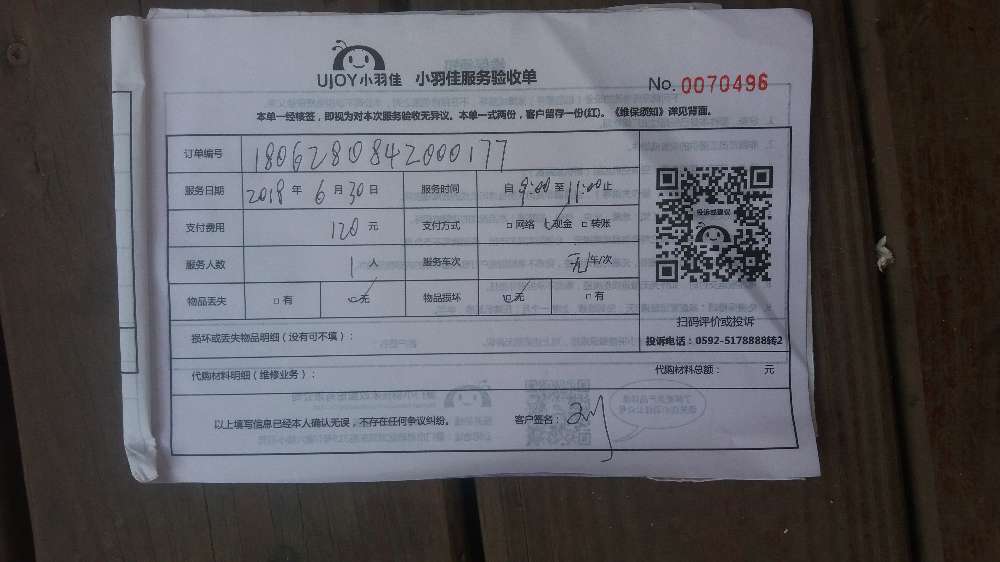 UJOY小羽佳 小羽佳服务验收单 No. 0070496
本单一经核签，即视为对本次服务验收无异议。本单一式两份，客户留存一份(红)。《维保须知》详见背面。
订单编号 1806280842000177
服务日期 2018 年 6 月 30 日 服务时间 自 9:00 至 11:00 止
支付费用 120 元 支付方式 □网络 □现金 □转账
服务人数 1 人 服务车次 无 车/次
物品丢失 □有 □无 物品损坏 □无 □有
投诉或建议
扫码评价或投诉
投诉电话：0592-5178888转2
损坏或丢失物品明细（没有可不填）：
代购材料明细（维修业务）： 代购材料总额： 元
以上填写信息已经本人确认无误，不存在任何争议纠纷。 客户签名：